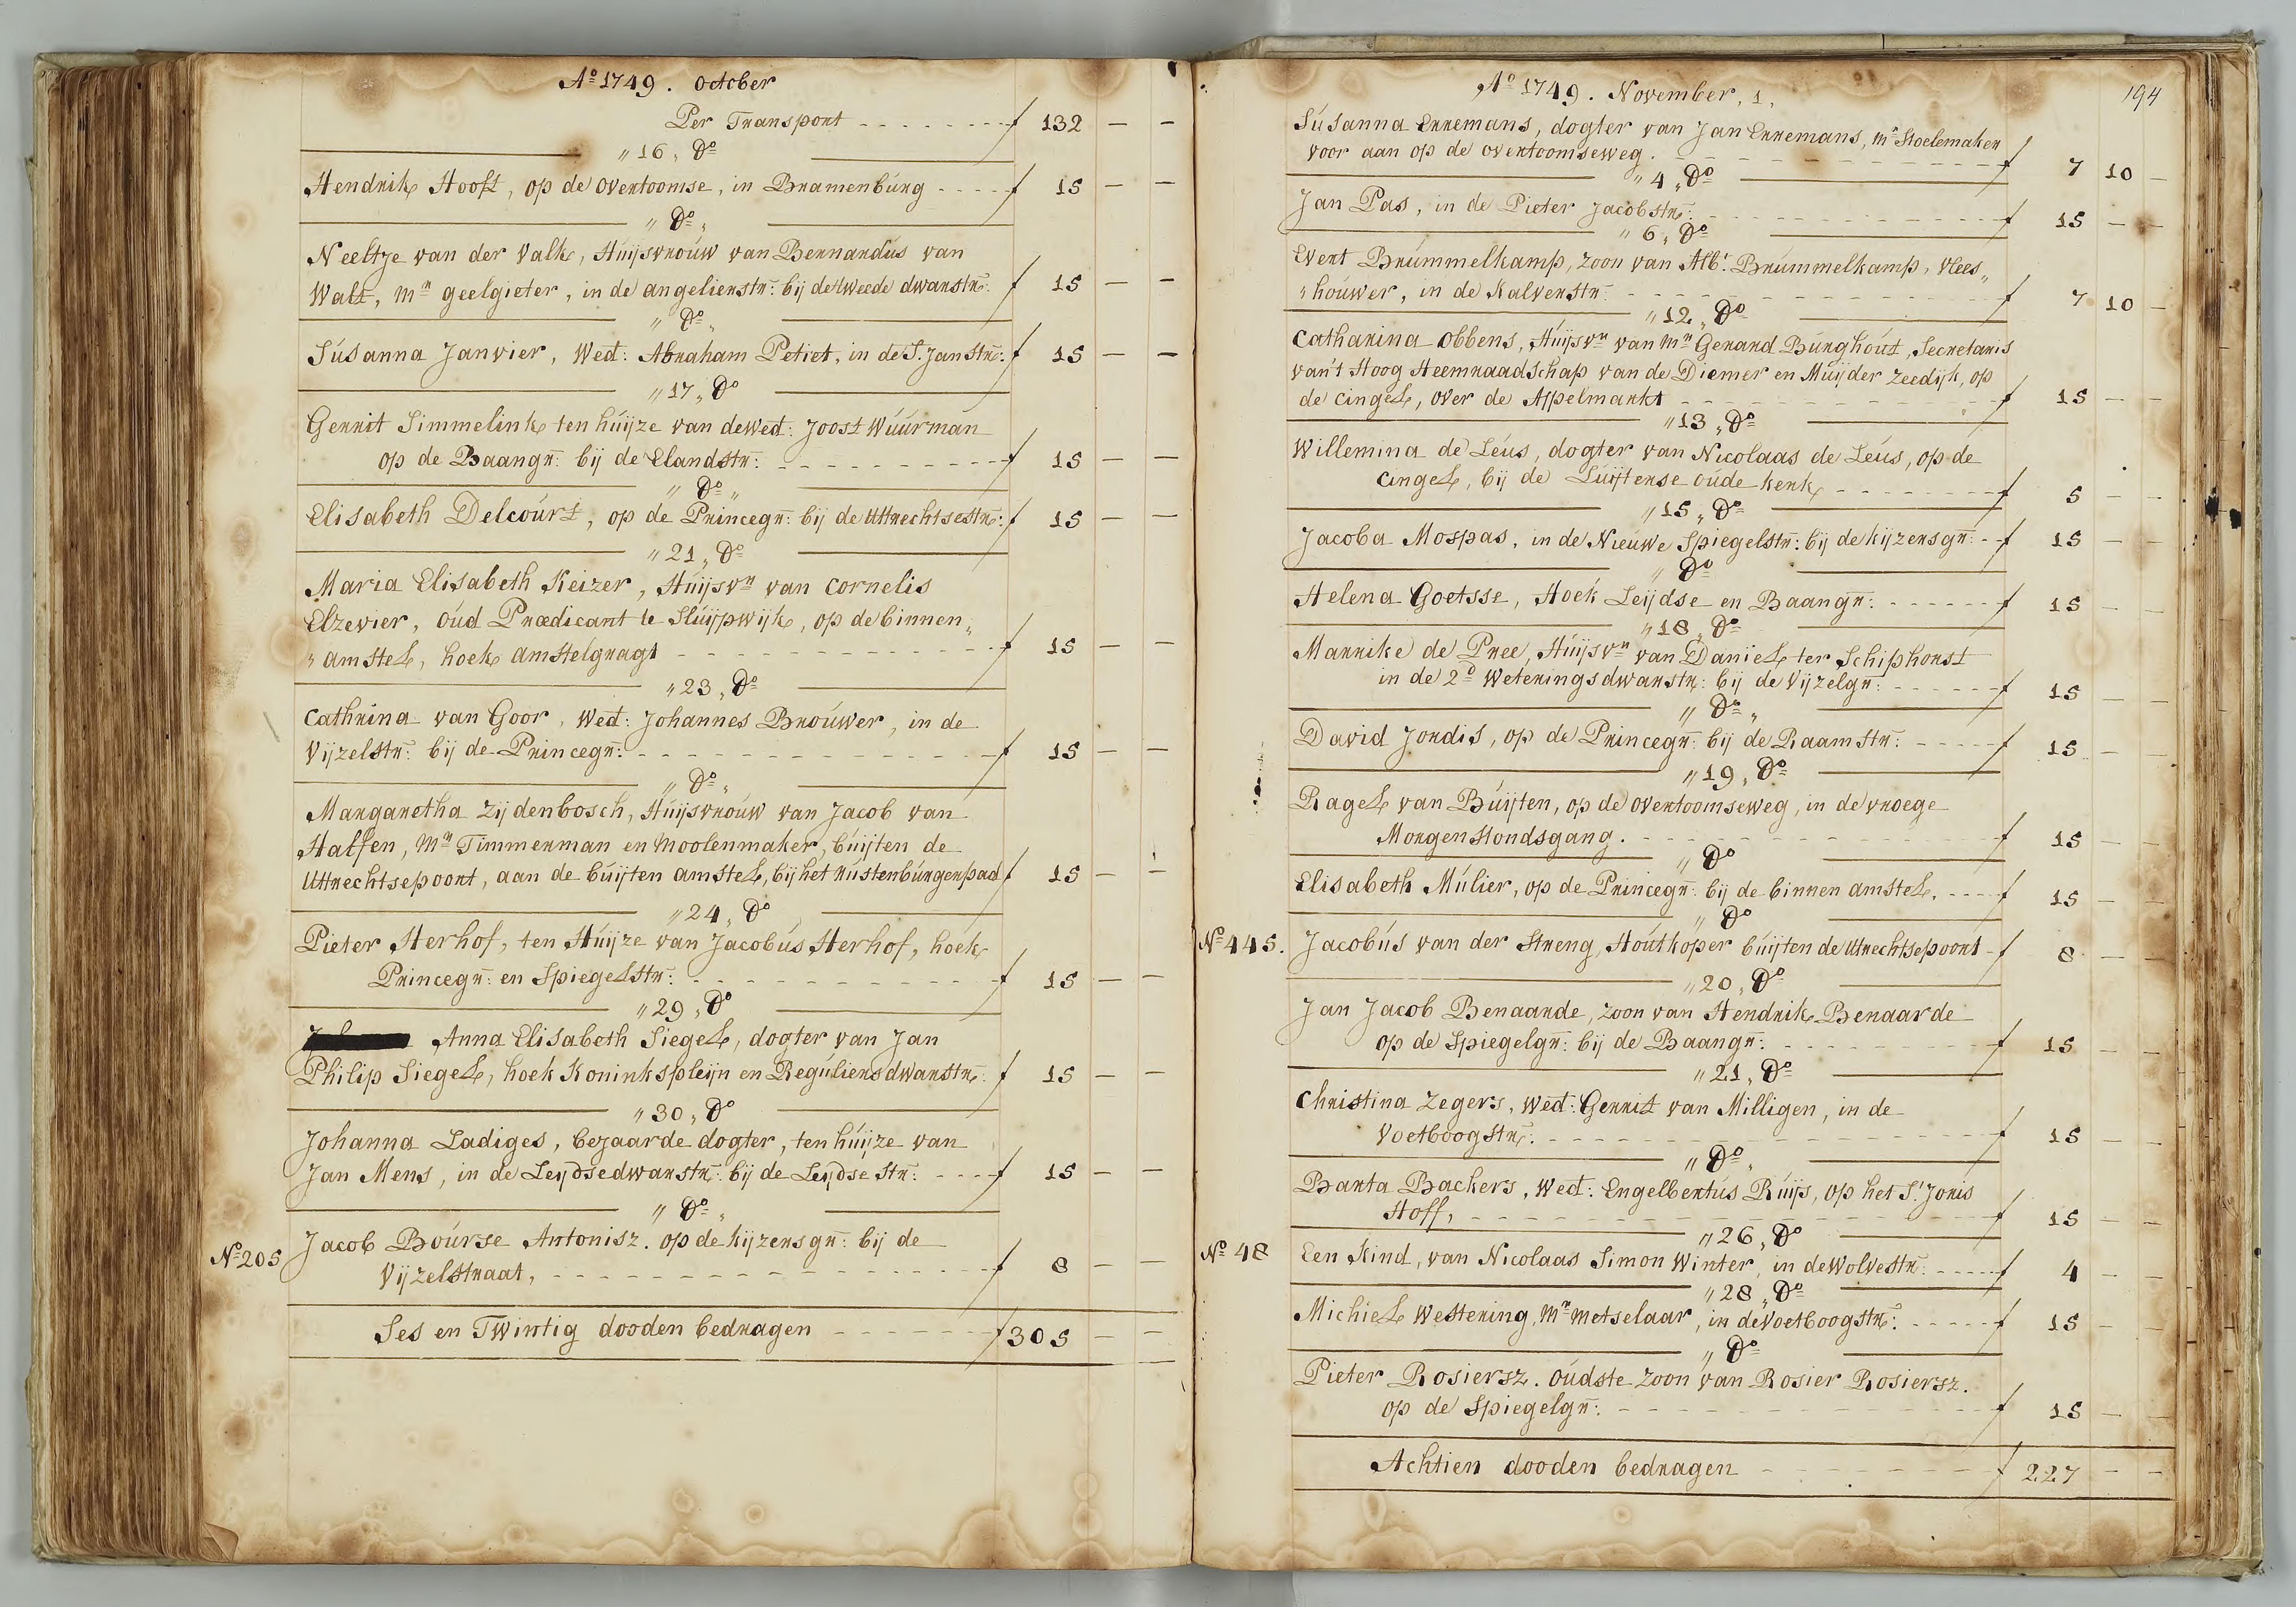 Aº 1749. October
Per Transport - - - - - - - - ƒ 132 — —
„ 16 „ Dº
Hendrik Hooft, op de overtoomse, in Bramenburg - - - - - ƒ 15 — —
„ Dº „
Neeltje van der Valk, Huijsvrouw van Bernardus van
Walt, Mr geelgieter, in de angelierstr: bij de tweede dwarsstr: ƒ 15 — —
„ Dº „
Susanna Janvier, Wed: Abraham Petiet, in de St. Jan Str: ƒ 15 — —
„ 17 „ Dº
Gerrit Simmelink ten huijze van de wed: Joost Wuurman
op de Baangr: bij de Elandstr: - - - - - - - - - - ƒ 15 — —
„ Dº „
Elisabeth Delcourt, op de Princegr: bij de Uttrechtsestr: ƒ 15 — —
„ 21 „ Dº
Maria Elisabeth Keizer, Huijsvr van Cornelis
Elzevier, oud Prædicant te Sluijpwijk, op de binnen„
„ amstel, hoek amstelgragt - - - - - - - - - - - - - - ƒ 15 — —
„ 23 „ Dº
Cathrina van Goor, Wed: Johannes Brouwer, in de
Vijzelstr: bij de Princegr: - - - - - - - - - - - - - - ƒ 15 — —
„ Dº „
Margaretha Zijdenbosch, Huijsvrouw van Jacob van
Halfen, Mr Timmerman en moolenmaker, buijten de
Uttrechtsepoort, aan de buijten amstel, bij het rustenburgerpad ƒ 15 — —
„ 24 „ Dº
Pieter Herhof, ten Huijze van Jacobus Herhof, hoek
Princegr: en Spiegelstr: - - - - - - - - - - - - - ƒ 15 — —
„ 29 „ Dº
Anna Elisabeth Siegel, dogter van Jan
Philip Siegel, hoek Koninkspleijn en Reguliersdwarsstr: ƒ 15 — —
„ 30 „ Dº
Johanna Ladiges, bejaarde dogter, ten huijze van
Jan Mens, in de Leijdsedwarsstr: bij de Leijdse Str: - - - - ƒ 15 — —
„ Dº „
Nº 205 Jacob Bourse Antonisz. op de kijzersgr: bij de
Vijzelstraat, - - - - - - - - - - - - - - - - - - ƒ 8 — —
Ses en Twintig dooden bedragen - - - - - - - ƒ 305 — —
194
Aº 1749. November, 1,
Susanna Erremans, dogter van Jan Erremans, Mr Stoelemaker
voor aan op de overtoomseweg. - - - - - - - - - - - ƒ 7 10 —
„ 4 „ Dº
Jan Pas, in de Pieter Jacobstr: - - - - - - - - - - - - - ƒ 15 — —
„ 6 „ Dº
Evert Brummelkamp, zoon van Albt. Brummelkamp, Vlees„
„ houwer, in de Kalverstr: - - - - - - - - - - - - - - ƒ 7 10 —
„ 12 „ Dº
Catharina obbens, Huijsvr van Mr Gerard Burghout, Secretaris
van't Hoog Heemraadschap van de Diemer en Muijder Zeedijk, op
de cingel, over de Appelmarkt - - - - - - - - - - - ƒ 15 — —
„ 13 „ Dº
Willemina de Leus, dogter van Nicolaas de Leus, op de
cingel, bij de Luijterse oude kerk - - - - - - - - ƒ 5 — —
„ 15 „ Dº
Jacoba Mospas, in de Nieuwe Spiegelstr: bij de kijzersgr: - - ƒ 15 — —
„ Dº
Helena Goetsse, Hoek Leijdse en Baangr: - - - - - - ƒ 15 — —
„ 18 „ Dº
Marrike de Pree, Huijsvr van Daniel ter Schiphorst
in de 2º Weteringsdwarsstr: bij de Vijzelgr: - - - - - - ƒ 15 — —
„ Dº „
David Jordis, op de Princegr: bij de Raamstr: - - - - - ƒ 15 — —
„ 19 „ Dº
Ragel van Buijten, op de overtoomseweg, in de vroege
Morgenstondsgang. - - - - - - - - - - - - - - ƒ 15 — —
„ Dº
Elisabeth Mulier, op de Princegr: bij de binnen amstel. - - - - ƒ 15 — —
„ Dº
Nº 445. Jacobus van der Streng, Houtkoper buijten de Utrechtsepoort - ƒ 8 — —
„ 20 „ Dº
Jan Jacob Benaarde, zoon van Hendrik Benaarde
op de Spiegelgr: bij de Baangr: - - - - - - - - - - ƒ 15 — —
„ 21 „ Dº
Christina Zegers, Wed: Gerrit van Milligen, in de
Voetboogstr: - - - - - - - - - - - - - - - - - ƒ 15 — —
„ Dº „
Barta Backers, Wed: Engelbertus Ruijs, op het St. Joris
Hoff, - - - - - - - - - - - - - - - - - - - - - ƒ 15 — —
„ 26 „ Dº
Nº 48 Een Kind, van Nicolaas Simon Winter, in de Wolvestr: - - - - - ƒ 4 — —
„ 28 „ Dº
Michiel Westering, Mr metselaar, in de Voetboogstr: - - - - - ƒ 15 — —
„ Dº
Pieter Rosiersz. oudste zoon van Rosier Rosiersz.
op de Spiegelgr: - - - - - - - - - - - - - - - - ƒ 15 — —
Achtien dooden bedragen - - - - - - - - - - - ƒ 227 — —